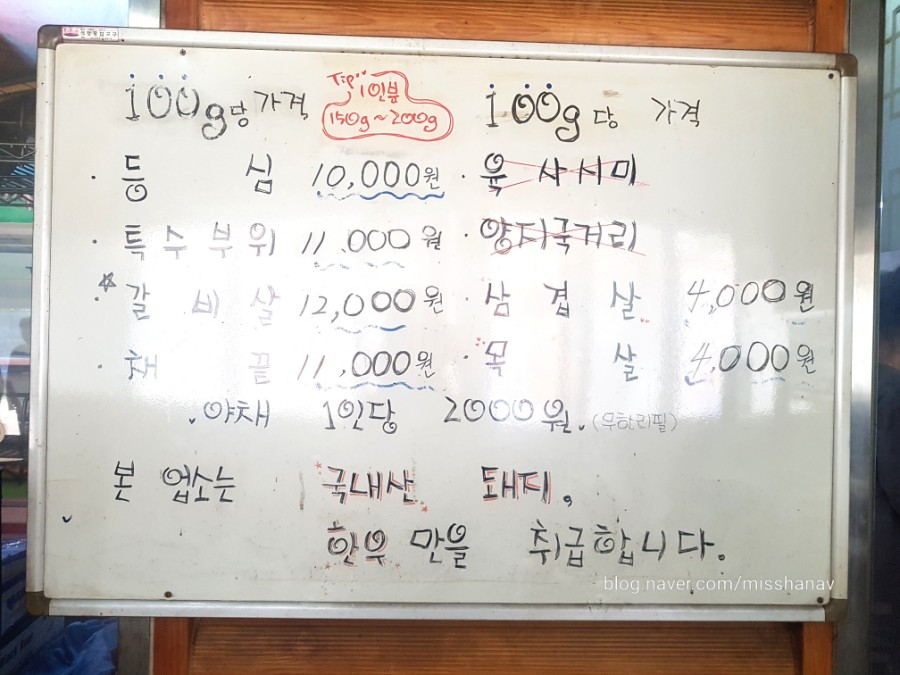 100g당 가격
Tip:
1인분
150g~200g
100g당 가격
· 등심 10,000원
· 특수부위 11,000원
· 갈비살 12,000원
· 채끝 11,000원
· 육사시미
· 양지국거리
· 삼겹살 4,000원
· 목살 4,000원
. 야채 1인당 2000원. (무한리필)
본 업소는 국내산 돼지,
한우만을 취급합니다.
blog.naver.com/misshanav